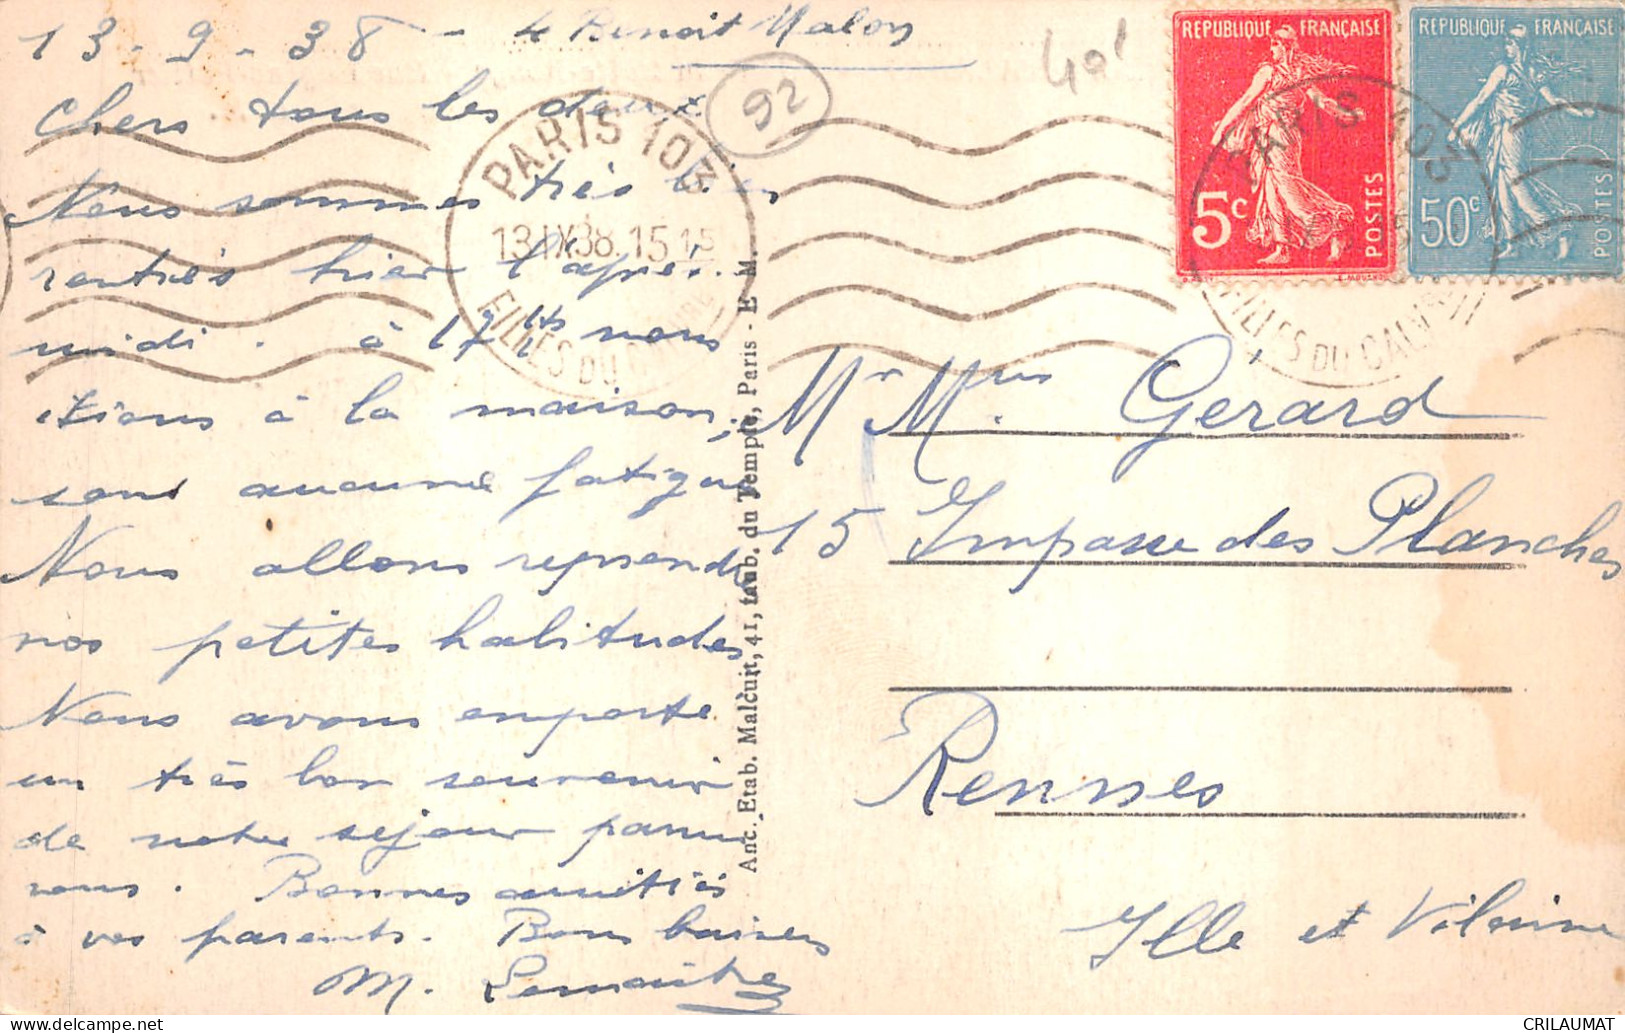 13-9-38 - 4 Benoit Malon
40f
92
Chers tous les deux
Nous sommes très bien
rentrés hier l'après
midi. à 17 hs 1/2 nous
étions à la maison,
sans aucune fatigue
Nous allons reprendre
nos petites habitudes
Nous avons emporté
un très bon souvenir
de notre séjour parmi
vous. Bonnes amitiés
à vos parents. Bons baisers
M. Lemaitre
PARIS 103
13 IX 38. 15 15
FILLES DU CALVAIRE
Anc. Etab. Malcuit, 41, faub. du Temple, Paris - E M.
REPUBLIQUE FRANÇAISE
5c
POSTES
REPUBLIQUE FRANÇAISE
50c
POSTES
PARIS 103
FILLES DU CALVAIRE
Mr Mme Gérard
15 Impasse des Planches
Rennes
Ille et Vilaine
CRILAUMAT